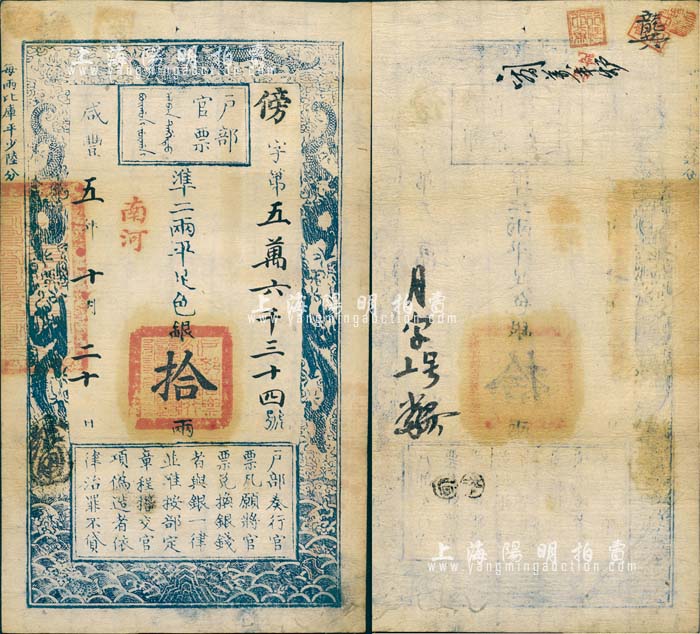 上海陽明拍賣
www.yangmingauction.com
每兩比庫平少陸分
戶部
官票
傍字第五萬六千三十四號
準二兩平足色銀拾兩
南河
咸豐五年十月二十日
戶部奏行官
票凡願將官
票兌換銀錢
者與銀一律
並准按部定
章程搭交官
項偽造者依
律治罪不貸
龔
月字